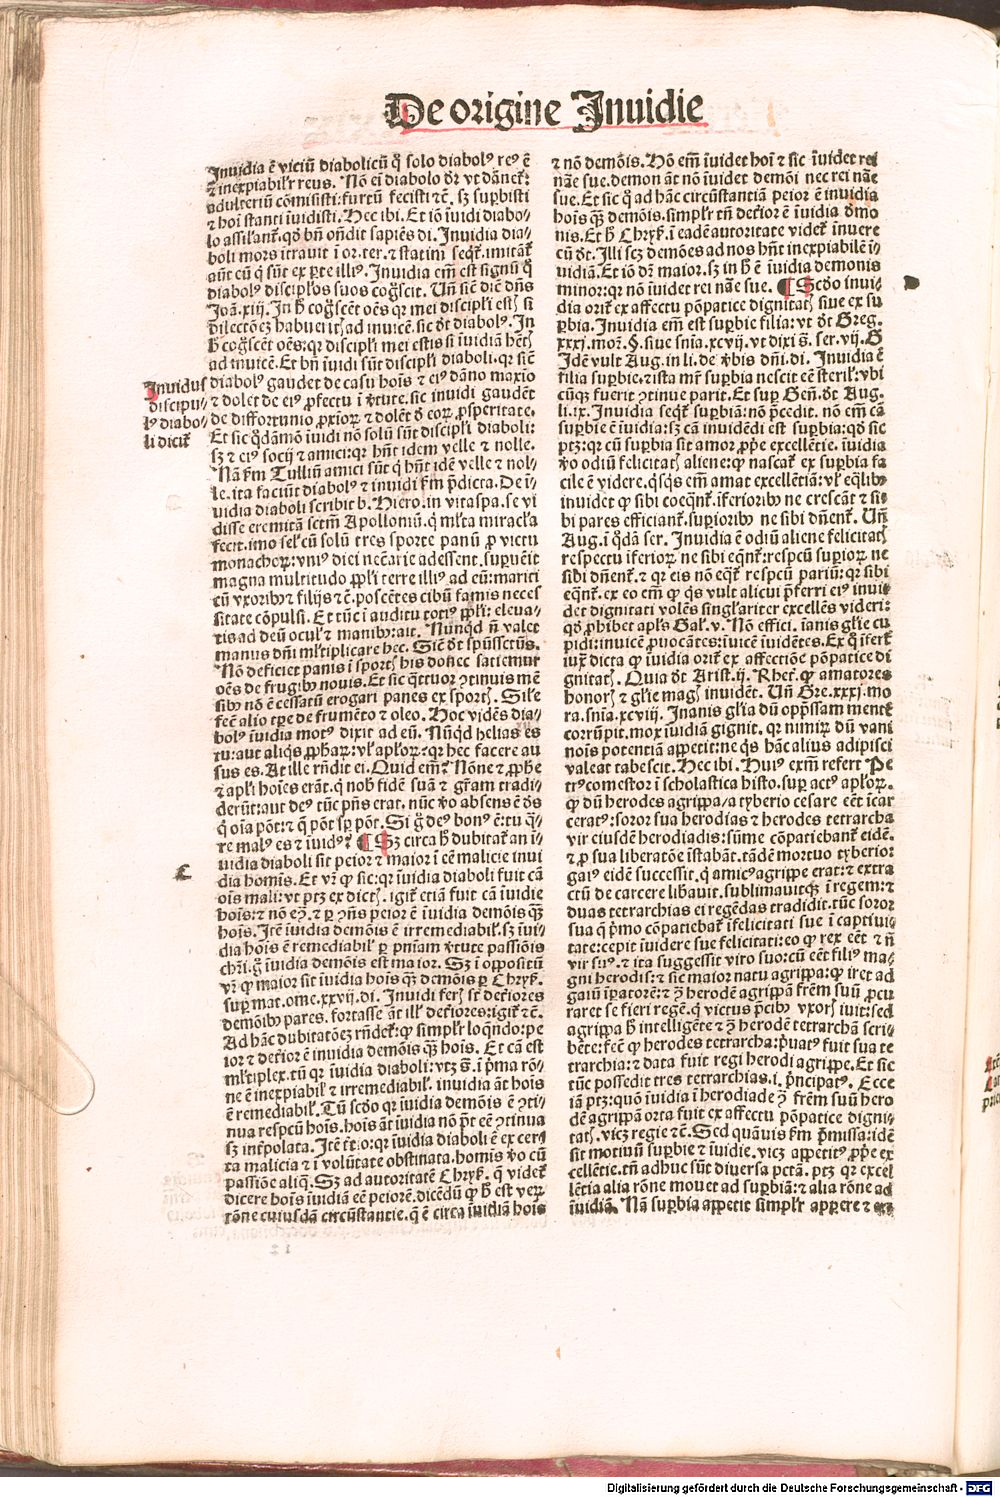 De origine Inuidie
Inuidia ē viciū diabolicū q̄ solo diabolꝰ reꝰ ē
⁊ inexpiabil'r reus. Nō eī diabolo dr̄ vt dānet̄:
adulteriū cōmisisti: furtū fecisti ⁊c̄. sꝫ suꝑbisti
⁊ hoī stanti īuidisti. Hec ibi. Et iō īuidi diabo-/
lo assilant̄. qd̓ bn̄ on̄dit sapiēs di. Inuidia dia-/
boli mors ītrauit ī or. ter. ⁊ statim seqt̄. imitāt̄
aūt eū q̄ sūt ex ꝑte illiꝰ. Inuidia em̄ est signū q̄
diabolꝰ discipl̓os suos cog̓scit. Un̄ sic̄ dic̄ dn̄s
Joā. xiij. In h̓ cog̓scēt oēs qꝛ mei discipl̓i estꝭ si
dilectōeꝫ habueritꝭ ad inuicē. sic dt̄ diabolꝰ. In
h̓ cog̓scēt oēs: qꝛ discipl̓i mei estis si īuidiā hēt̄ꝭ
ad inuicē. Et bn̄ īuidi sūt discipl̓i diaboli. qꝛ sic̄
diabolꝰ gaudet de casu hoīs ⁊ eiꝰ dāno maxīo
⁊ dolet de eiꝰ ꝓfectu ī v̓tute. sic inuidi gaudēt
de diffortunio ꝓxioꝝ ⁊ dolēt d̓ eoꝝ ꝓsperitate.
Et sic q̄dāmō īuidi nō solū sūt discipl̓i diaboli:
sꝫ ⁊ eiꝰ socij ⁊ amici: qꝛ hn̄t idem velle ⁊ nolle.
Nā fm̄ Tulliū amici sūt q̄ hn̄t idē velle ⁊ nol-/
le. ita faciūt diabolꝰ ⁊ inuidi fm̄ p̄dicta. De ī-/
uidia diaboli scribit b. Hiero. in vitaspa. se vi
disse eremitā sctm̄ Apolloniū. q̄ ml̓ta miracl̓a
fecit. imo sel̓ cū solū tres sporte panū ꝓ victu
monachoꝝ: vniꝰ diei nec̄arie adessent. supuēit
magna multitudo ppl̓i terre illiꝰ ad eū: mariti
cū vxoribꝰ ⁊ filijs ⁊c̄. poscētes cibū famis neces
sitate cōpulsi. Et tūc ī auditu totiꝰ ppl̓i: eleua-/
tis ad deū ocul̓ ⁊ manibꝰ: ait. Nunq̄d n̄ valet
manus dn̄i ml̓tiplicare hec. Sic̄ dt̄ spūssct̄us.
Nō deficiet panis ī sportꝭ his donec satiemur
oēs de frugibꝰ nouis. Et sic q̄ttuor ꝯtinuis mē
sibꝰ nō ē cessatū erogari panes ex sportꝭ. Sil̓e
fec̄ alio tꝑe de frumēto ⁊ oleo. Hoc vidēs dia-/
bolꝰ īuidia motꝰ dixit ad eū. Nūq̄d helias es
tu: aut aliq̄s ꝓphaꝝ: vl̓ apl̓oꝝ: qꝛ hec facere au
sus es. At ille rn̄dit ei. Quid em̄? Nōne ⁊ ꝓph̓e
⁊ apl̓i hoīes erāt. q̄ nob̓ fidē suā ⁊ gr̄am tradi-/
derūt: aut deꝰ tūc pn̄s erat. nūc v̓o absens ē d̓s
q̄ oīa pōt: ⁊ q̄ pōt sp̄ pōt. Si g̓ deꝰ bonꝰ ē: tu q̄-/
re malꝰ es ⁊ īuidꝰ? ¶ Sꝫ circa h̓ dubitat̄ an ī-/
uidia diaboli sit peior ⁊ maior ī cē malicie inui
dia homīs. Et vr̄ ꝙ sic: qꝛ īuidia diaboli fuit cā
oīs mali: vt ptꝫ ex dictꝭ. igit̄ etiā fuit cā īuidie
hoīs: ⁊ nō eꝯ. ⁊ ꝑ ꝯn̄s peior ē īuidia demōis q̄ꝫ
hoīs. Itē īuidia demōis ē irremediabil̓. sꝫ īui-/
dia hoīs ē remediabil̓ ꝑ pn̄iam v̓tute passiōis
chr̄i. g̓ īuidia demōis est maior. Sꝫ ī oppositū
vr̄ ꝙ maior sit īuidia hoīs q̄ꝫ demōis ꝑ Chryẜ.
suꝑ mat. ome. xxvij. di. Inuidi ferꝭ sr̄ det̓iores
demōibꝰ pares. fortasse āt ill̓ det̓iores: igit̄ ⁊c̄.
Ad hāc dubitatōeꝫ rn̄det̄: ꝙ simpl̓r loq̄ndo: pe
ior ⁊ det̓ior ē inuidia demōis q̄ꝫ hoīs. Et cā est
ml̓tiplex. tū qꝛ īuidia diaboli: vtꝫ s̄. ī p̓ma rō-/
ne ē inexpiabil̓ ⁊ irremediabil̓. inuidia āt hoīs
ē remediabil̓. Tū scd̓o qꝛ īuidia demōis ē ꝯti-/
nua respcū hoīs. hoīs āt īuidia nō p̄t cē ꝯtinua
sꝫ int̓polata. Itē t̓tio: qꝛ īuidia diaboli ē ex cer-/
ta malicia ⁊ ī volūtate obstinata. homīs v̓o cū
passiōe aliq̄. Sꝫ ad autoritatē Chryẜ. q̄ videt̄
dicere hoīs īuidiā cē peiorē. dicēdū ꝙ h̓ est veꝝ
rōne cuiusdā circūstantie. q̄ ē circa īuidiā hoīs
Inuidus
discipu-/
lꝰ diabo-/
li dicit̄
⁊ nō demōis. Hō em̄ īuidet hoī ⁊ sic īuidet rei
nāe sue. demon āt nō īuidet demōi nec rei nāe
sue. Et sic q̄ ad hāc circūstantiā peior ē inuidia
hoīs q̄ꝫ demōis. simpl̓r tn̄ det̓ior ē īuidia d̓mo
nis. Et h̓ Chryẜ. ī eadē autoritate videt̄ īnuere
cū dt̄. Illi scꝫ demōes ad nos hn̄t inexpiabilē ī-/
uidiā. Et iō dr̄ maior. sꝫ in h̓ ē īuidia demonis
minor: qꝛ nō īuidet rei nāe sue. ¶ Scd̓o inui-/
dia orit̄ ex affectu pōpatice dignitatꝭ siue ex su
ꝑbia. Inuidia em̄ est suꝑbie filia: vt dt̄ Greg.
xxxj. mor̄. §. siue sn̄ia. xcvij. vt dixi s̄. ser. vij. G
Idē vult Aug. in li. de v̓bis dn̄i. di. Inuidia ē
filia suꝑbie. ⁊ ista mr̄ suꝑbia nescit cē steril̓: vbi
cūqꝫ fuerit ꝯtinue parit. Et suꝑ Gen̄. dt̄ Aug.
li. ix. Inuidia seqt̄ suꝑbiā: nō p̄cedit. nō em̄ cā
suꝑbie ē īuidia: sꝫ cā inuidēdi est suꝑbia: qd̓ sic
ptꝫ: qꝛ cū suꝑbia sit amor ꝓpe excellētie. īuidia
v̓o odiū felicitatꝭ aliene: ꝙ nascat̄ ex suꝑbia fa
cile ē videre. q̓sq̓s em̄ amat excellētiā: vl̓ eq̄libꝰ
inuidet ꝙ sibi coeqn̄t. īferioribꝰ ne crescāt ⁊ si-/
bi pares efficiant̄. suꝑioribꝰ ne sibi dn̄ent̄. Un̄
Aug. ī q̄dā ser. Inuidia ē odiū aliene felicitatꝭ
respectu īferioꝝ ne sibi eqn̄t̄: respcū suꝑioꝝ ne
sibi dn̄ent̄. ⁊ qꝛ eis nō eqt̄ respcū pariū: qꝛ sibi
eqn̄t̄. ex eo em̄ ꝙ q̓s vult alicui p̄ferri eiꝰ inui-/
det dignitati volēs singl̓ariter excellēs videri:
qd̓ ꝓhibet apl̓s Gal̓. v. Nō effici. īanis gl̓ie cu
pidi: inuicē ꝓuocātes: īuicē īuidētes. Ex q̄ īfert̄
iuxͣ dicta ꝙ īuidia orit̄ ex affectiōe pōpatice di
gnitatꝭ. Quia dt̄ Arist. ij. Rhet̓. ꝙ amatores
honorꝭ ⁊ gl̓ie magꝭ inuidēt. Un̄ Gre. xxxj. mo
ra. sn̄ia. xcviij. Inanis gl̓ia dū opp̄ssam mentē
corrūpit. mox īuidiā gignit. qꝛ nimiꝝ dū vani
nois potentiā appetit: ne q̓s hāc alius adipisci
valeat tabescit. Hec ibi. Huiꝰ exm̄ refert Pe
trꝰ comestor ī scholastica histo. suꝑ actꝰ apl̓oꝝ.
ꝙ dū herodes agrippa/ a tyberio cesare eēt īcar
ceratꝰ: soror sua herodias ⁊ herodes tetrarcha
vir eiusdē herodiadis: sūme cōpatiebant̄ eidē.
⁊ ꝓ sua liberatōe īstabāt. tādē mortuo tyberio:
gaiꝰ eidē successit. q̄ amicꝰ agrippe erat: ⁊ extra
ctū de carcere lib̓auit. sublimauitqꝫ ī regem: ⁊
duas tetrarchias ei regēdas tradidit. tūc soror
sua q̄ p̓mo cōpatiebat̄ īfelicitati sue ī captiui-/
tate: cepit īuidere sue felicitati: eo ꝙ rex eēt ⁊ n̄
vir suꝰ. ⁊ ita suggessit viro suo: cū eēt filiꝰ ma-/
gni herodis: ⁊ sic maior natu agrippa: ꝙ iret ad
gaiū īꝑatorē: ⁊ ꝯͣ herodē agrippā frēm suū ꝓcu
raret se fieri regē. q̄ victus p̄cibꝰ vxorꝭ iuit: sed
agrippa h̓ intelligēte ⁊ ꝯͣ herodē tetrarchā scri-/
bēte: fec̄ ꝙ herodes tetrarcha: p̓uatꝰ fuit sua te
trarchia: ⁊ data fuit regi herodi agrippe. Et sic
tūc possedit tres tetrarchias. i. p̓ncipatꝰ. Ecce
iā ptꝫ: quō īuidia ī herodiade ꝯͣ frēm suū hero
dē agrippā orta fuit ex affectu pōpatice digni-/
tatꝭ. vicꝫ regie ⁊c̄. Sed quāuis fm̄ p̄missa: idē
sit motiuū suꝑbie ⁊ īuidie. vicꝫ appetitꝰ ꝓpe ex
cellētie. tn̄ adhuc sūt diuersa pctā. ptꝫ qꝛ excel
lētia alia rōne mouet ad suꝑbiā: ⁊ alia rōne ad
īuidiā. Nā suꝑbia appetit simpl̓r apꝑere ⁊ ex-/
Digitalisierung gefördert durch die Deutsche Forschungsgemeinschaft - DFG